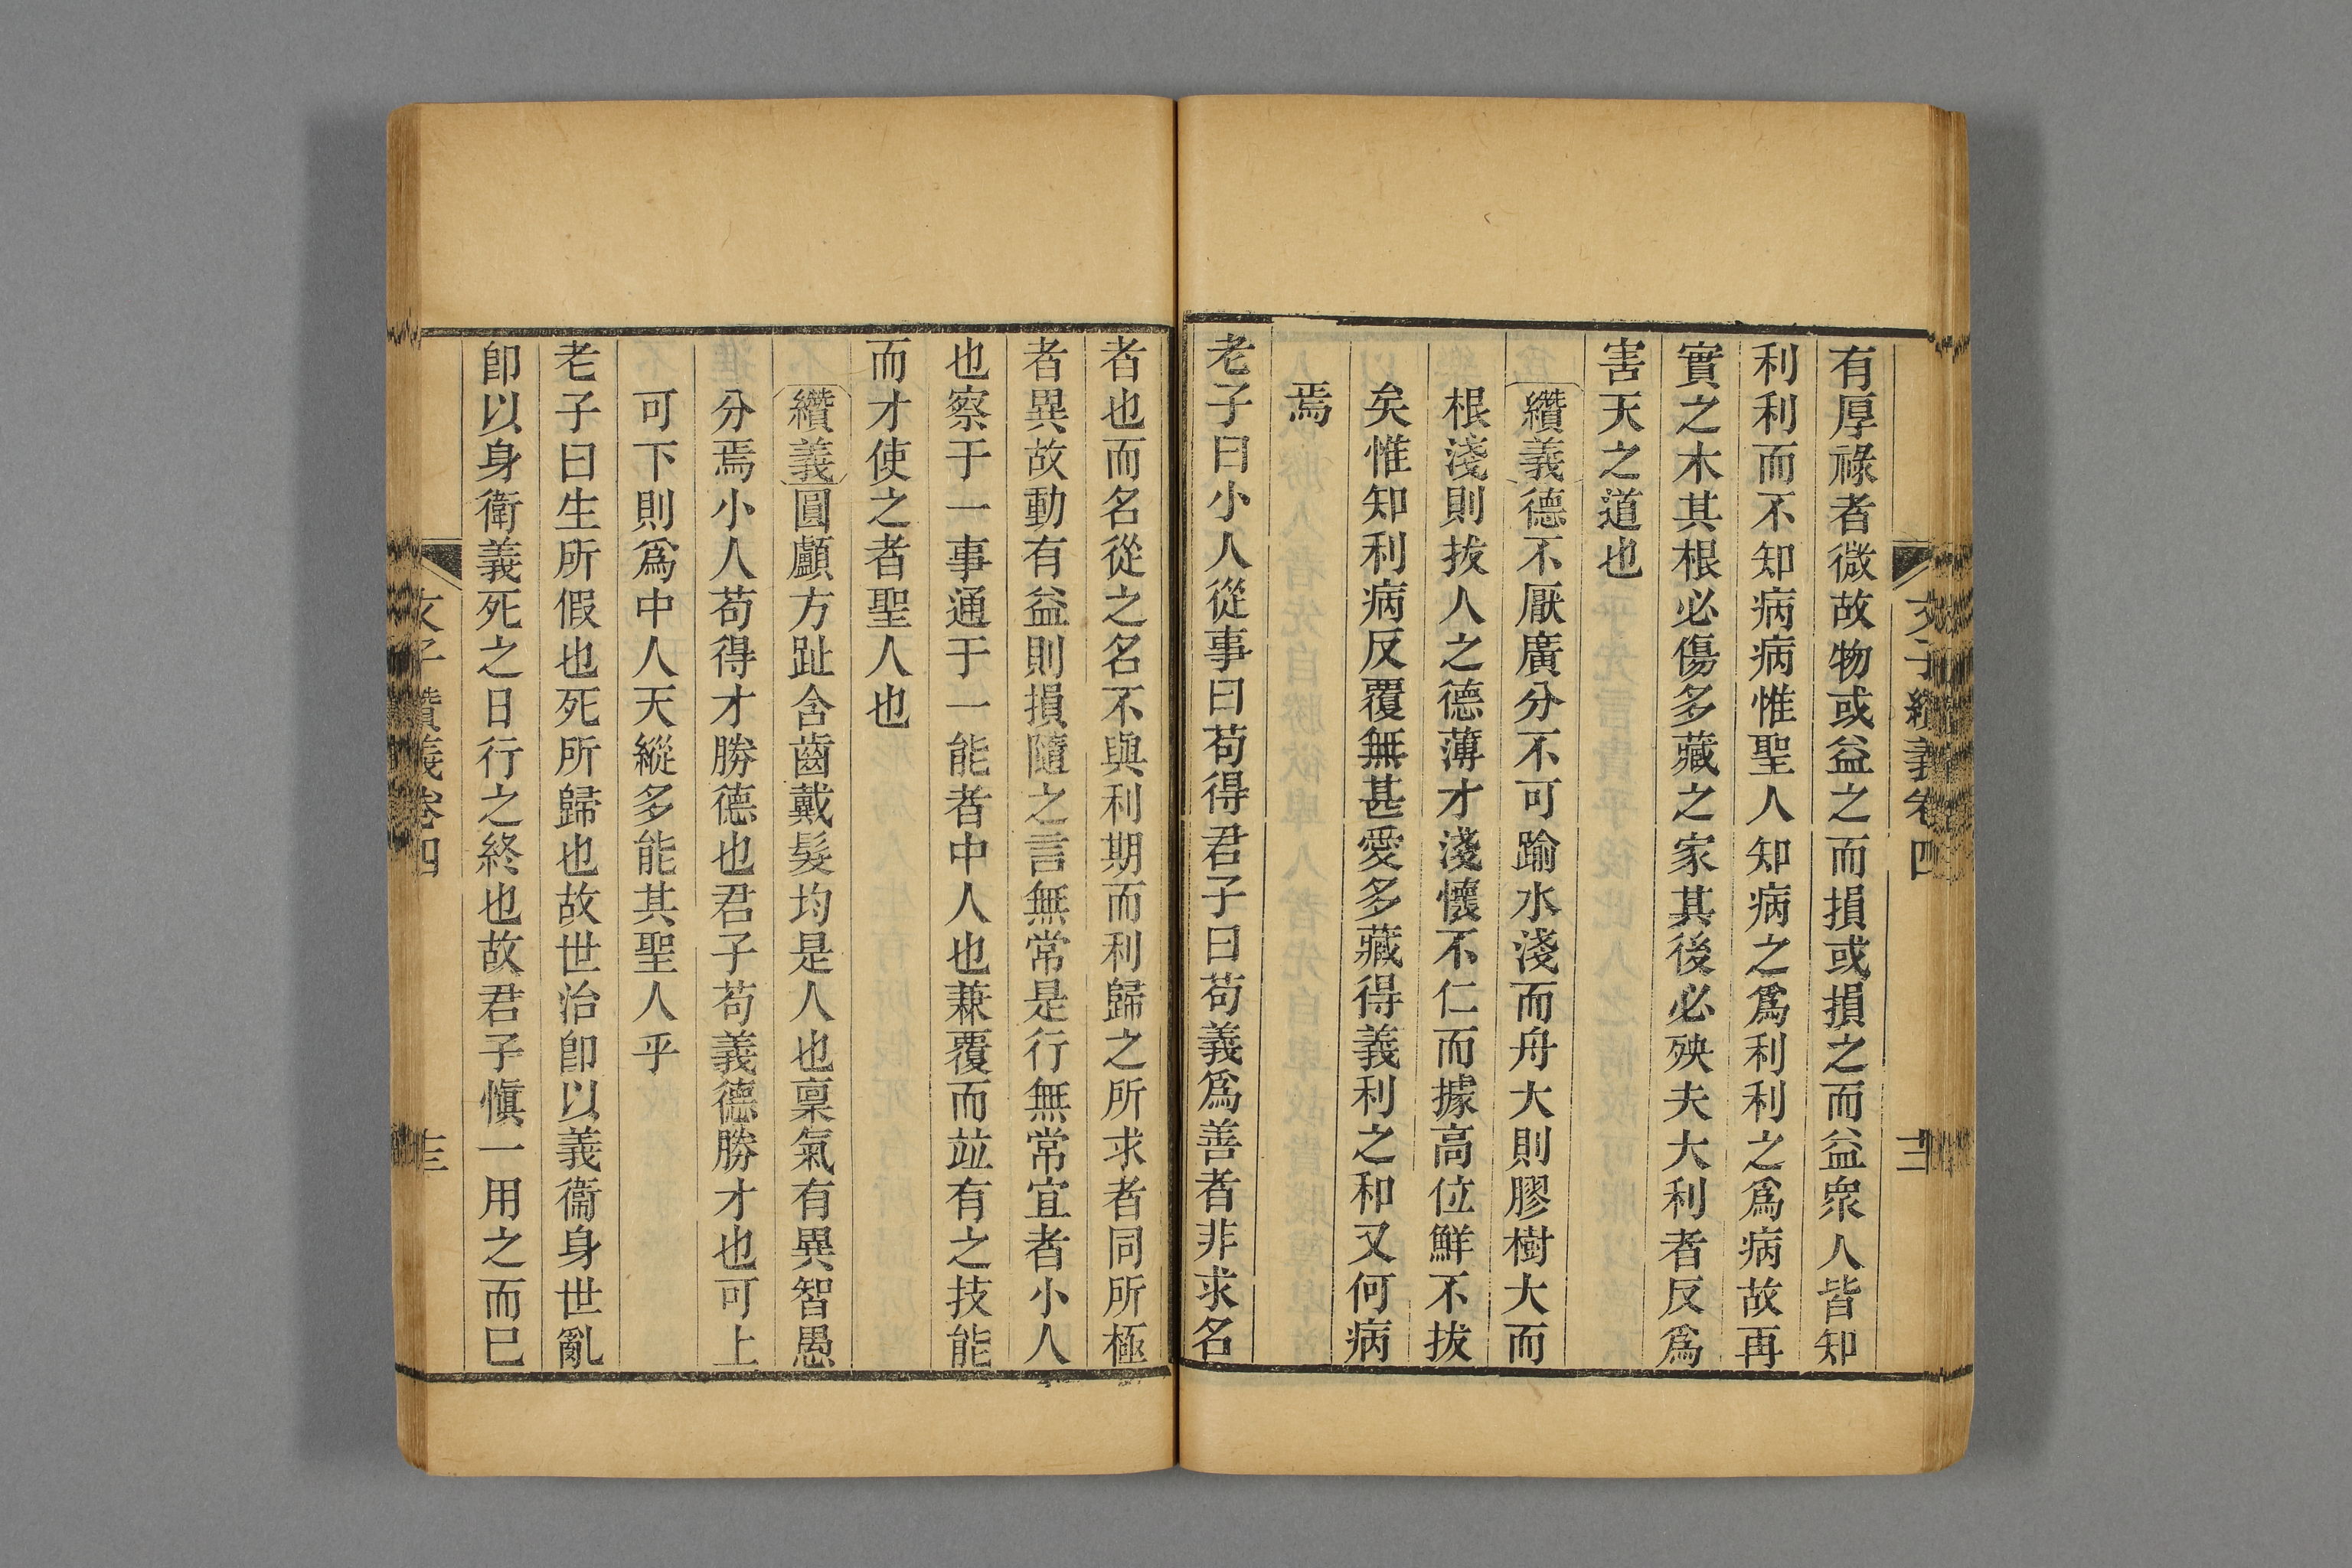 文子纘義卷四
十二
有厚祿者微故物或益之而損或損之而益衆人皆知
利利而不知病病惟聖人知病之爲利利之爲病故再
實之木其根必傷多藏之家其後必殃夫大利者反爲
害天之道也
纘義德不厭廣分不可踰水淺而舟大則膠樹大而
根淺則拔人之德薄才淺懷不仁而據高位鮮不拔
矣惟知利病反覆無甚愛多藏得義利之和又何病
焉
老子曰小人從事曰苟得君子曰苟義爲善者非求名
者也而名從之名不與利期而利歸之所求者同所極
者異故動有益則損隨之言無常是行無常宜者小人
也察于一事通于一能者中人也兼覆而竝有之技能
而才使之者聖人也
纘義圓顱方趾含齒戴髮均是人也稟氣有異智愚
分焉小人苟得才勝德也君子苟義德勝才也可上
可下則爲中人天縱多能其聖人乎
老子曰生所假也死所歸也故世治卽以義衞身世亂
卽以身衛義死之日行之終也故君子愼一用之而巳
文子纘義卷四
十三